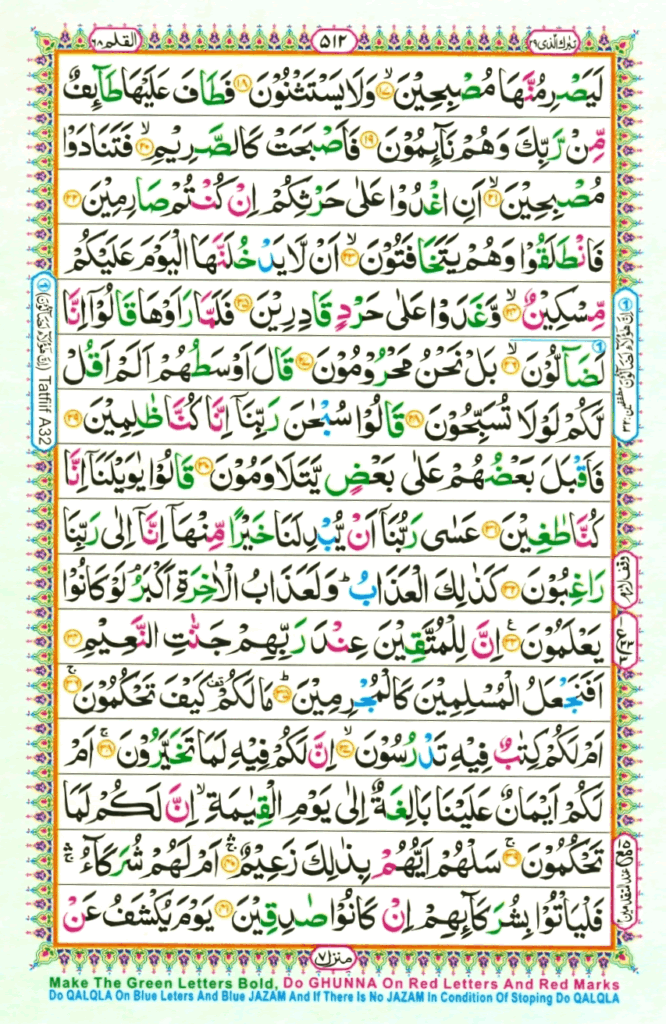 تبٰرك الذی ٢٩
٥١٢
القلم ٦٨
لَيَصْرِمُنَّهَا مُصْبِحِيْنَ ۙ‏ ﴿۱۷﴾ وَلَا يَسْتَثْنُوْنَ ‏ ﴿۱۸﴾ فَطَافَ عَلَيْهَا طَآئِفٌ
مِّنْ رَّبِّكَ وَهُمْ نَآئِمُوْنَ ‏ ﴿۱۹﴾ فَاَصْبَحَتْ كَالصَّرِيْمِ ۙ‏ ﴿۲۰﴾ فَتَنَادَوْا
مُصْبِحِيْنَ ۙ‏ ﴿۲۱﴾ اَنِ اغْدُوْا عَلٰى حَرْثِكُمْ اِنْ كُنْتُمْ صَارِمِيْنَ ‏ ﴿۲۲﴾
فَانْطَلَقُوْا وَهُمْ يَتَخَافَتُوْنَ ۙ‏ ﴿۲۳﴾ اَنْ لَّا يَدْخُلَنَّهَا الْيَوْمَ عَلَيْكُمْ
مِّسْكِيْنٌ ۙ‏ ﴿۲۴﴾ وَّغَدَوْا عَلٰى حَرْدٍ قَادِرِيْنَ ‏ ﴿۲۵﴾ فَلَمَّا رَاَوْهَا قَالُوْۤا اِنَّا
لَضَآلُّوْنَ ۙ‏ ﴿۲۶﴾ بَلْ نَحْنُ مَحْرُوْمُوْنَ ‏ ﴿۲۷﴾ قَالَ اَوْسَطُهُمْ اَلَمْ اَقُلْ
لَّكُمْ لَوْلَا تُسَبِّحُوْنَ ‏ ﴿۲۸﴾ قَالُوْا سُبْحٰنَ رَبِّنَاۤ اِنَّا كُنَّا ظٰلِمِيْنَ ‏ ﴿۲۹﴾
فَاَقْبَلَ بَعْضُهُمْ عَلٰى بَعْضٍ يَّتَلَاوَمُوْنَ ‏ ﴿۳۰﴾ قَالُوْا يٰوَيْلَنَاۤ اِنَّا
كُنَّا طٰغِيْنَ ‏ ﴿۳۱﴾ عَسٰى رَبُّنَاۤ اَنْ يُّبْدِلَنَا خَيْرًا مِّنْهَاۤ اِنَّاۤ اِلٰى رَبِّنَا
رٰغِبُوْنَ ‏ ﴿۳۲﴾ كَذٰلِكَ الْعَذَابُ‌ؕ وَلَعَذَابُ الْاٰخِرَةِ اَكْبَرُ‌ۘ لَوْ كَانُوْا
يَعْلَمُوْنَ ‏ ﴿۳۳﴾ اِنَّ لِلْمُتَّقِيْنَ عِنْدَ رَبِّهِمْ جَنّٰتِ النَّعِيْمِ ‏ ﴿۳۴﴾
اَفَنَجْعَلُ الْمُسْلِمِيْنَ كَالْمُجْرِمِيْنَ ؕ‏ ﴿۳۵﴾ مَا لَكُمْ كَيْفَ تَحْكُمُوْنَ ۚ‏ ﴿۳۶﴾
اَمْ لَكُمْ كِتٰبٌ فِيْهِ تَدْرُسُوْنَ ۙ‏ ﴿۳۷﴾ اِنَّ لَكُمْ فِيْهِ لَمَا تَخَيَّرُوْنَ‌ ۚ‏ ﴿۳۸﴾ اَمْ
لَكُمْ اَيْمَانٌ عَلَيْنَا بَالِغَةٌ اِلٰى يَوْمِ الْقِيٰمَةِ‌ ۙ اِنَّ لَكُمْ لَمَا
تَحْكُمُوْنَ‌ ۚ‏ ﴿۳۹﴾ سَلْهُمْ اَيُّهُمْ بِذٰلِكَ زَعِيْمٌ ۛۚ ‏ ﴿۴۰﴾ اَمْ لَهُمْ شُرَكَآءُ ۛۚ
فَلْيَاْتُوْا بِشُرَكَآئِهِمْ اِنْ كَانُوْا صٰدِقِيْنَ ‏ ﴿۴۱﴾ يَوْمَ يُكْشَفُ عَنْ
منزل ٧
Make The Green Letters Bold, Do GHUNNA On Red Letters And Red Marks
Do QALQLA On Blue Leters And Blue JAZAM And If There Is No JAZAM In Condition Of Stoping Do QALQLA
Tatfiif A32